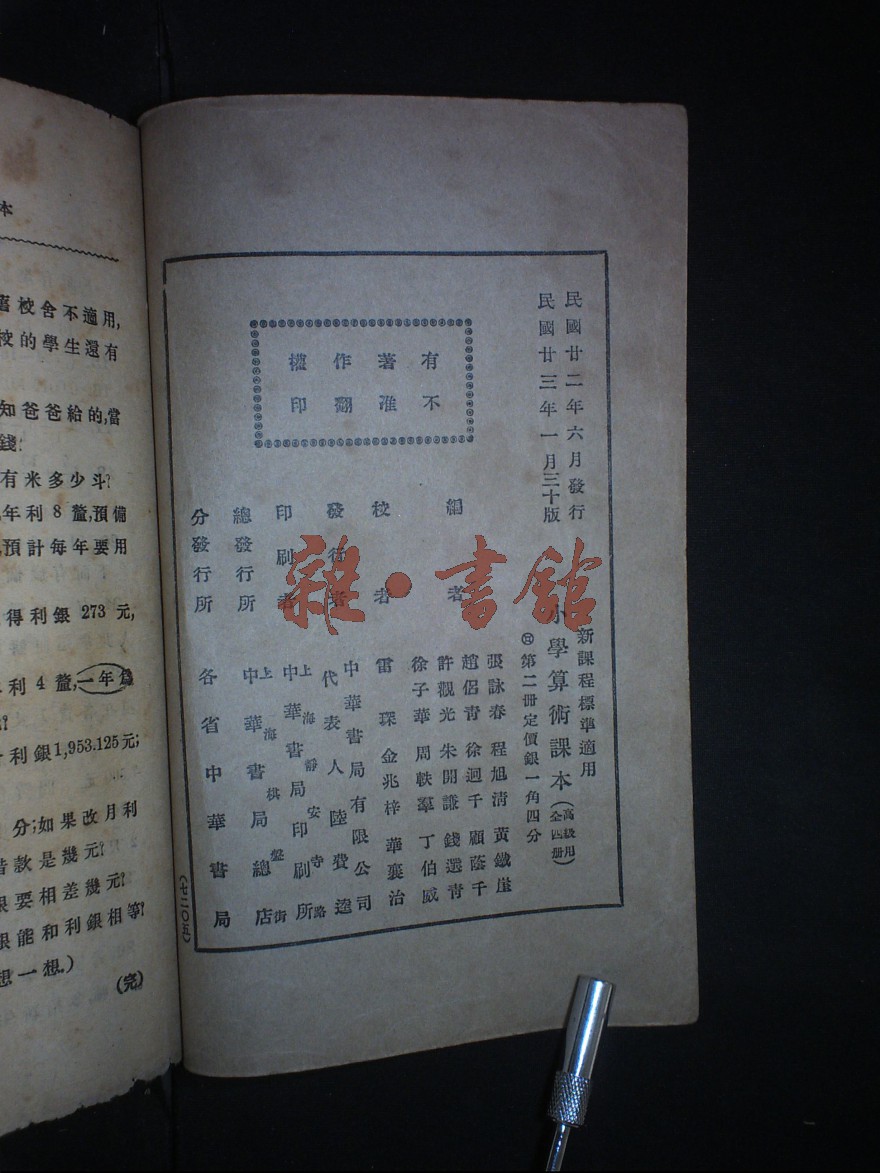 民國廿二年六月發行
民國廿三年一月三十版
有著作權
不准翻印
新課程標準適用
小學算術課本(高級用全四冊)
第二册定價銀一角四分
編者
張詠春 程旭清 黃鐵崖
趙侶青 徐迥千 顧蔭千
許觀光 朱開謙 錢選青
徐子華 周軼羣 丁伯威
校者
雷琛 金兆梓 華襄治
發行者
中華書局有限公司
代表人 陸費逵
印刷者
上海靜安寺路
中華書局印刷所
總發行所
上海棋盤街
中華書局總店
分發行所
各省中華書局
(七二〇五)
雜·書館
本
舊校舍不適用,
校的學生還有
知爸爸給的,當
錢?
有米多少斗?
年利8釐,預備
預計每年要用
得利銀273元,
利4釐,一年
利銀1,953.125元;
分;如果改月利
借款是幾元?
要相差幾元?
能和利銀相等?
想一想。)
(完)